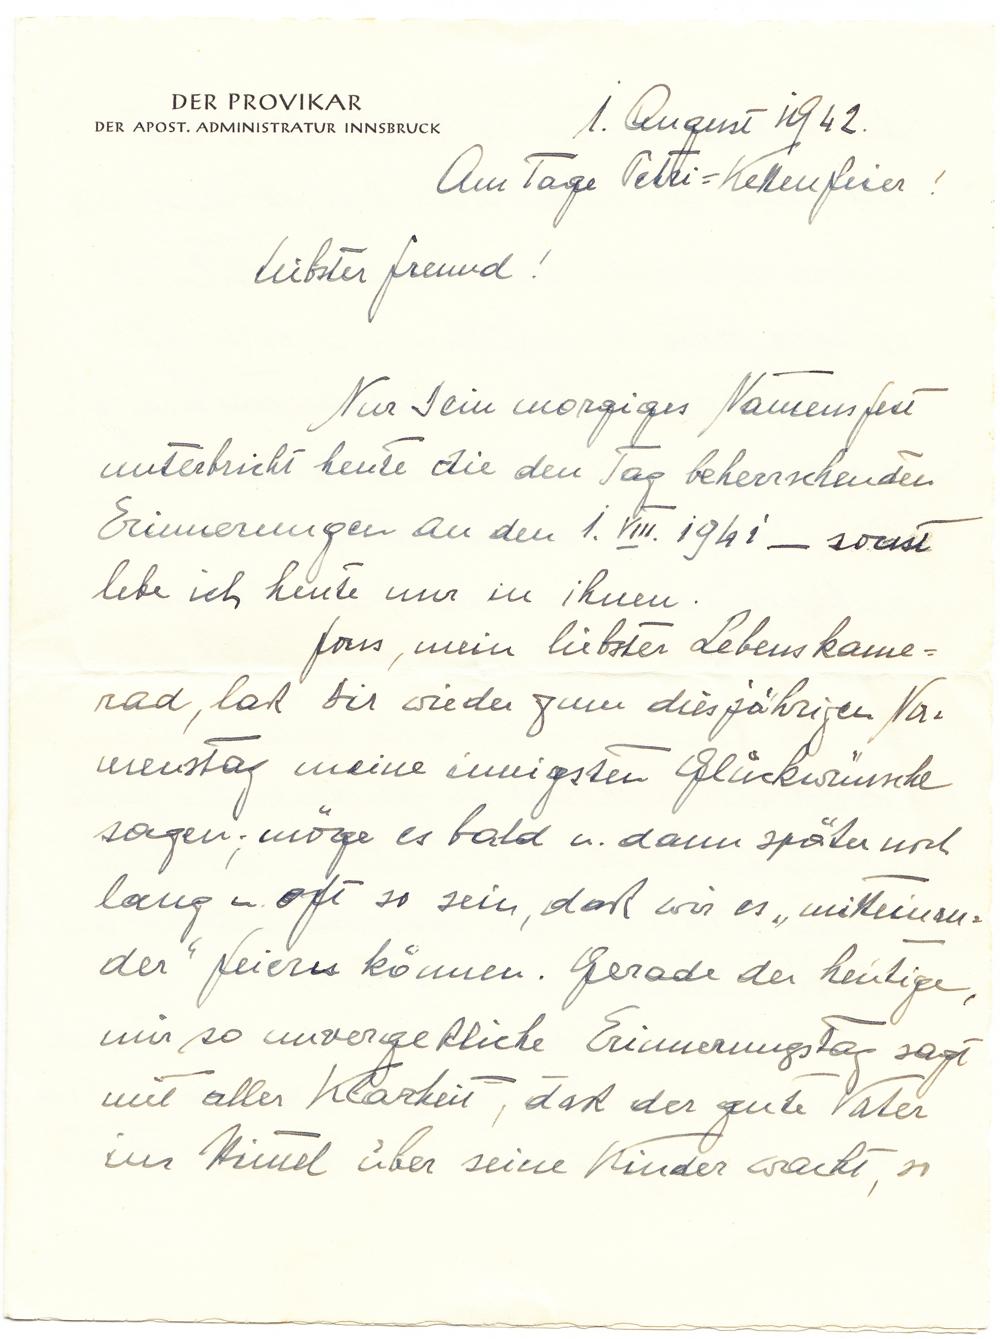 DER PROVIKAR
DER APOST. ADMINISTRATUR INNSBRUCK
1. August 1942.
Am Tage Petri=Kettenfeier!
Liebster Freund!
Nur Dein morgiges Namensfest
unterbricht heute die den Tag beherrschenden
Erinnerungen an den 1. VIII. 1941 — sonst
lebe ich heute nur in ihnen.
mein liebster Lebenskame=
rad, laß Dir wieder zum diesjährigen Na=
menstag meine innigsten Glückwünsche
sagen; möge es bald u. dann später noch
lang u. oft so sein, daß wir es „mitteinan=
der" feiern können. Gerade der heutige,
mir so unvergeßliche Erinnerungstag sagt
mit aller Klarheit, daß der gute Vater
im Himmel über seine Kinder wacht, so